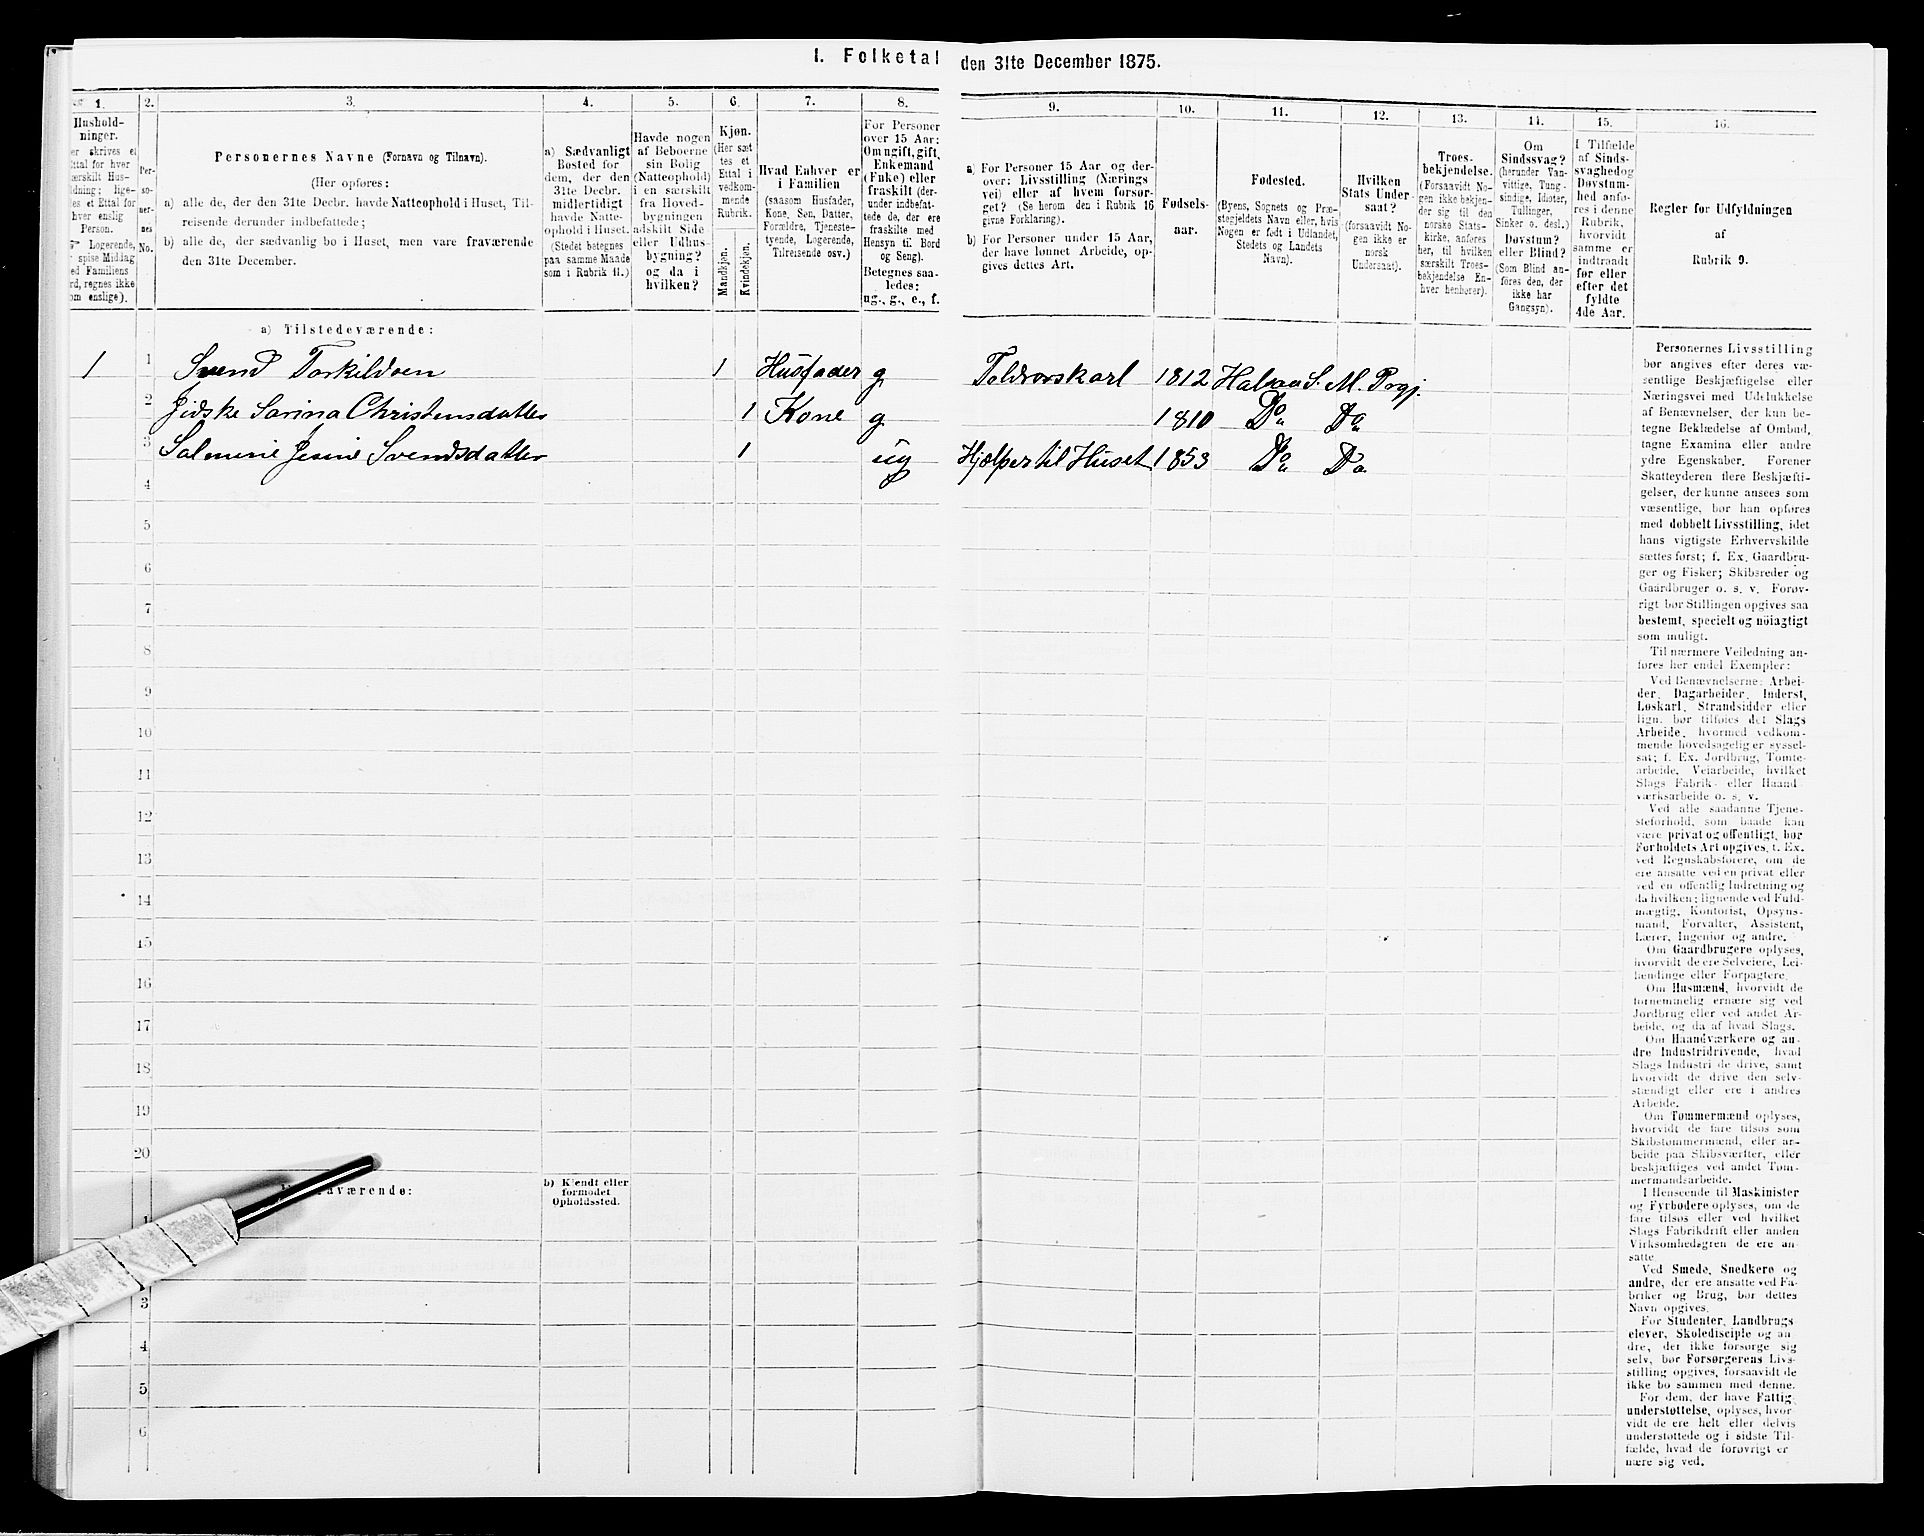 I. Folketal den 31te December 1875.
1. 2. 3. 4. 5. 6. 7. 8. 9. 10. 11. 12. 13. 14. 15. 16.
Hushold-
ninger.
er skrives et
Ettal for hver
ærskilt Hus-
ldning; lige-
des et Ettal for
hver enslig
Person.
Logerende,
spise Middag
ed Familiens
rd, regnes ikke
om enslige).
Per-
so-
ner-
nes
No.
Personernes Navne (Fornavn og Tilnavn).
(Her opføres:
a) alle de, der den 31te Decbr. havde Natteophold i Huset, Til-
reisende derunder indbefattede;
b) alle de, der sædvanlig bo i Huset, men vare fraværende
den 31te December.
a) Sædvanligt
Bosted for
dem, der den
31te Decbr.
midlertidigt
havde Natte-
ophold i Huset.
(Stedet betegnes
paa samme Maade
som i Rubrik 11.)
Havde nogen
af Beboerne
sin Bolig
(Natteophold)
i en særskilt
fra Hoved-
bygningen
adskilt Side
eller Udhus-
bygning?
og da i
hvilken?
Kjøn.
(Her sæt
tes et
Ettal i
vedkom-
mende
Rubrik.
Mandkjøn.
Kvindekjøn.
Hvad Enhver er
i Familien
(saasom Husfader,
Kone, Søn, Datter,
Forældre, Tjeneste-
tyende, Logerende,
Tilreisende osv.)
For Personer
over 15 Aar:
Om ugift, gift,
Enkemand
(Enke) eller
fraskilt (der-
under indbefat-
tede de, der ere
fraskilte med
Hensyn til Bord
og Seng).
Betegnes saa-
ledes:
ug., g., e., f.
a) For Personer 15 Aar og der-
over: Livsstilling (Nærings
vei) eller af hvem forsør-
get? (Se herom den i Rubrik 16
givne Forklaring).
b) For Personer under 15 Aar,
der have lønnet Arbeide, op-
gives dettes Art.
Fødsels-
aar.
Fødested.
(Byens, Sognets og Præ-
stegjeldets Navn eller, hvis
Nogen er født i Udlandet,
Stedets og Landets
Navn).
Hvilken
Stats Under-
saat?
(forsaavidt No-
gen ikke er
norsk
Undersaat).
Troes-
bekjendelse.
(Forsaavidt No-
gen ikke bekjen-
der sig til den
norske Stats-
kirke, anføres
her, til hvilken
særskilt Troes-
bekjendelse En-
hver henhører).
Om
Sindssvag?
(herunder Van-
vittige, Tung-
sindige, Idioter,
Tullinger,
Sinker o. desl.)
Døvstum?
eller Blind?
(Som Blind an-
føres den, der
ikke har
Gangsyn).
I Tilfælde
af Sinds-
svaghed og
Døvstum-
hed anfø-
res i denne
Rubrik,
hvorvidt
samme er
indtraadt
før eller
efter det
fyldte
4de Aar.
Regler for Udfyldningen
af
Rubrik 9.
a) Tilstedeværende:
1 1 Svend Torkildsen 1 Husfader g Toldrorskarl 1812 Halsaa S. M. Prgj.
2 Jidske Sarina Christensdatter 1 Kone g 1810 Do Do
3 Salmine Jesine Svendsdatter 1 ug Hjælper til Huset 1853 Do Do
4
5
6
7
8
9
10
11
12
13
14
15
16
17
18
19
20
raværende:
b) Kjendt eller
formodet
Opholdssted.
1
3
4
5
6
Personernes Livsstilling
bør angives efter deres væ-
sentlige Beskjæftigelse eller
Næringsvei med Udelukkelse
af Benævnelser, der kun be-
tegne Beklædelse af Ombud,
tagne Examina eller andre
ydre Egenskaber. Forener
Skatteyderen flere Beskjæfti-
gelser, der kunne ansees som
væsentlige, bør han opføres
med dobbelt Livsstilling, idet
hans vigtigste Erhvervskilde
sættes først; f. Ex. Gaardbru-
ger og Fisker; Skibsreder og
Gaardbruger o. s. v. Forøv-
rigt bør Stillingen opgives saa
bestemt, specielt og nöiagtigt
som muligt.
Til nærmere Veiledning an-
føres her endel Exempler:
Ved Benævnelserne: Arbei-
der, Dagarbeider, Inderst,
Løskarl, Strandsidder eller
lign. bør tilføies det Slags
Arbeide, hvormed vedkom-
mende hovedsagelig er syssel-
sat; f. Ex. Jordbrug, Tomte-
arbeide, Veiarbeide, hvilket
Slags Fabrik- eller Haand-
værksarbeide o. s. v.
Ved alle saadanne Tjene-
steforhold, som baade kan
være privat og offentligt, bør
Forholdets Art opgives, f. Ex.
ved Regnskabsførere, om de
ere ansatte ved en privat eller
ved en offentlig Indretning og
da hvilken; lignende ved Fuld-
mægtig, Kontorist, Opsyns-
mand, Forvalter, Assistent,
Lærer, Ingeniør og andre.
Om Gaardbrugere oplyses,
hvorvidt de ere Selveiere, Lei-
lændinge eller Forpagtere.
Om Husmænd, hvorvidt de
fornemmelig ernære sig ved
Jordbrug eller ved andet Ar-
beide, og da af hvad Slags.
Om Haandværkere og an-
dre Industridrivende, hvad
Slags Industri de drive, samt
hvorvidt de drive den selv-
stændigt eller ere i andres
Arbeide.
Om Tømmermænd oplyses,
hvorvidt de fare tilsøs som
Skibstømmermænd, eller ar-
beide paa Skibsværfter, eller
beskjæftiges ved andet Tøm-
mermandsarbeide.
I Henseende til Maskinister
og Fyrbødere oplyses, om de
fare tilsøs eller ved hvilket
Slags Fabrikdrift eller anden
Virksomhedsgren de ere an-
satte.
Ved Smede, Snedkere og
andre, der ere ansatte ved Fa-
briker og Brug, bør dettes
Navn opgives.
For Studenter, Landbrugs
elever, Skoledisciple og an
dre, der ikke forsørge sig
selv, bør Forsørgerens Livs-
stilling opgives, forsaavidt de
ikke bo sammen med denne.
For dem, der have Fattig-
understøttelse, oplyses, hvor
vidt de ere helt eller delvis
understøttede og i sidste Til-
fælde, hvad de forøvrigt er
nære sig ved.